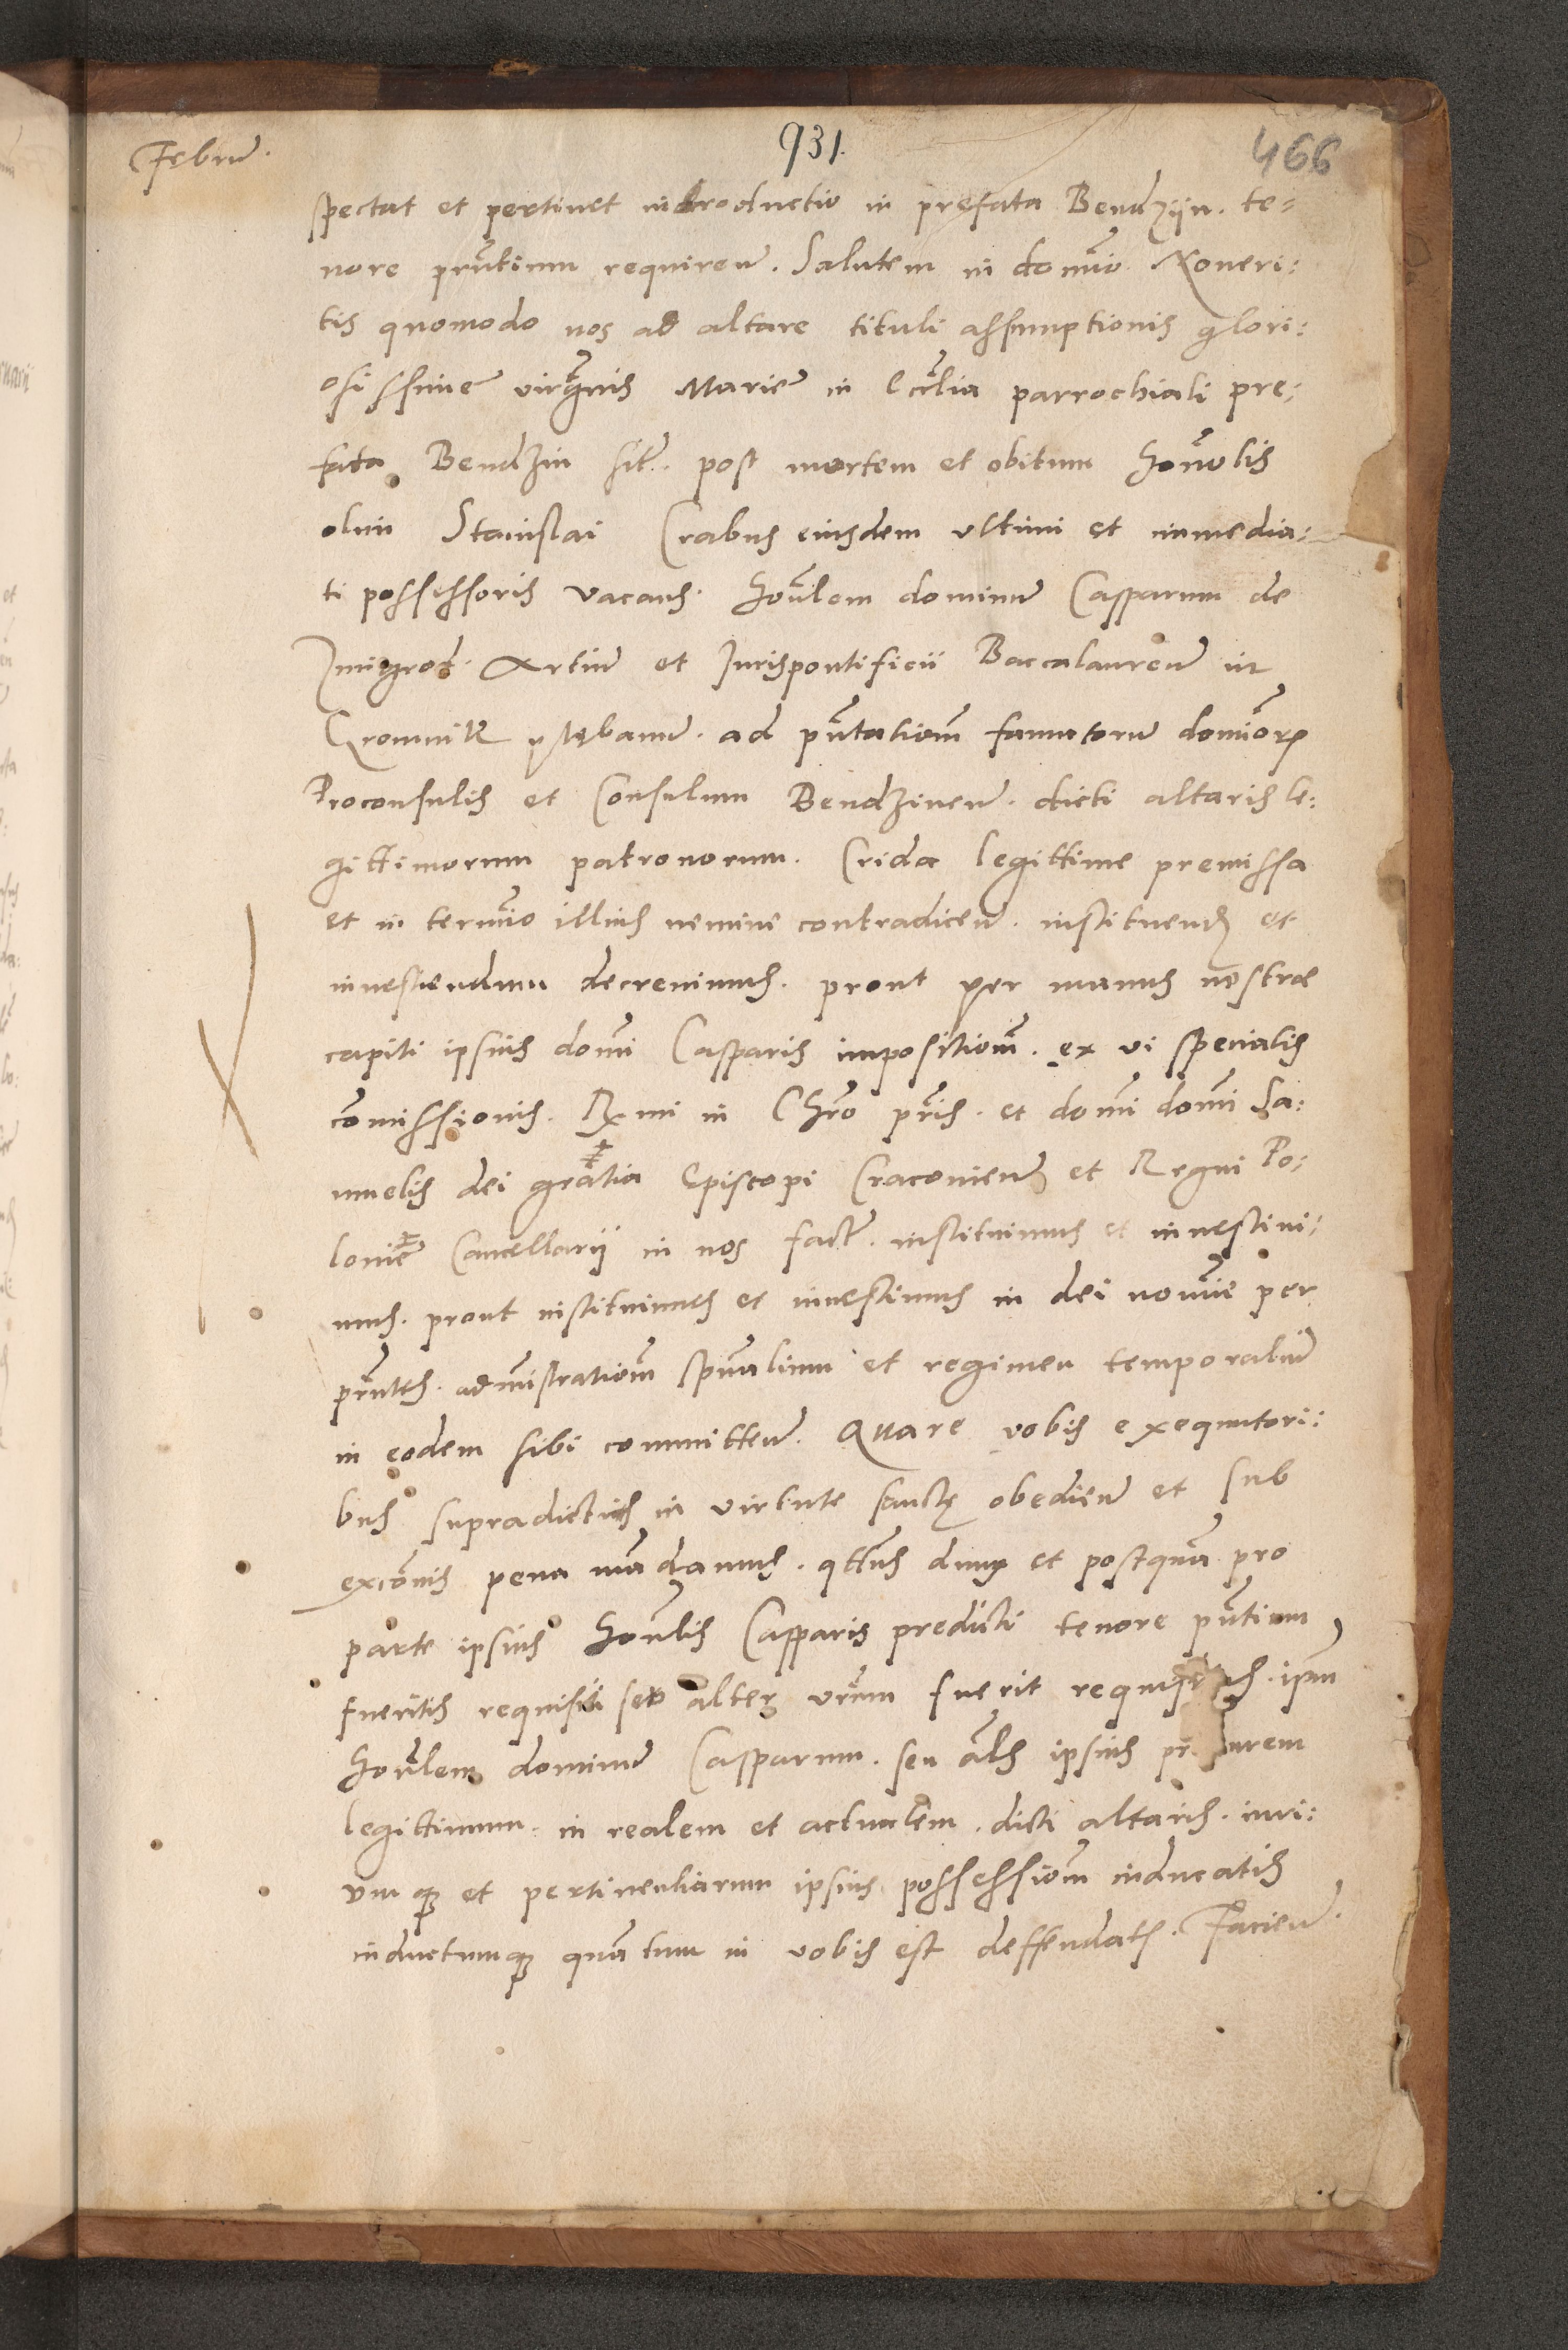 Februar.
931.
466
spectat et pertinet introductio in prefata Bendzijn. te-
nore pn̄tium requiren̄. Salutem in domīo Noveri:
tis quomodo nos ad altare tituli assumptionis glori:
osissime virginis Marie in Eccl̄ia parrochiali pre:
fata Bendzin sit̄. post mortem et obitum hon̄olis
olim Stanislai Crabus eiusdem ultimi et immedia:
ti possessoris vacans. hon̄lem dominū Casparum de
Imigrod. Artiū et Jurispontificii Baccalaureū in
plebanū. ad pn̄tationē famatorū domīorum
Proconsulis et Consulum Bendzinen̄. dicti altaris le:
gittimorum patronorum. Crida legittime premissa
et in termīo illius nemine contradicen̄. instituend et
investiendum decrevimus. prout per manus nostre
capiti ipsius domī Casparis impositionē. ex vi specialis
com̄issionis. Rmi in Chr̄o pr̄is. et domī domī Sa:
muelis dei gratia Episcopi Cracovien̄ et Regni Po:
lonie Cancellarij in nos fact̄. instituimus et investivi:
mus. prout instituimus et investimus in dei nomīe per
pn̄tes. admīstrationē spūalium et regimen temporaliū
in eodem sibi committen̄. Quare vobis exequutori:
bus supradictis in virtute sanctę obedien̄ et sub
excōis pena mandamus. qt̄us dum et postquā pro
parte ipsius hon̄lis Casparis predicti tenore pn̄tium
fueritis requisiti seu alter vr̄um fuerit requisitus. ipm̄
hon̄lem dominū Casparum. seu al̄s ipsius pr urem
legittimum. in realem et actualem. dicti altaris. iuri:
umque et pertinentiarum ipsius possessionē inducatis
inductumque quantum in vobis est deffendatis. Facien̄.